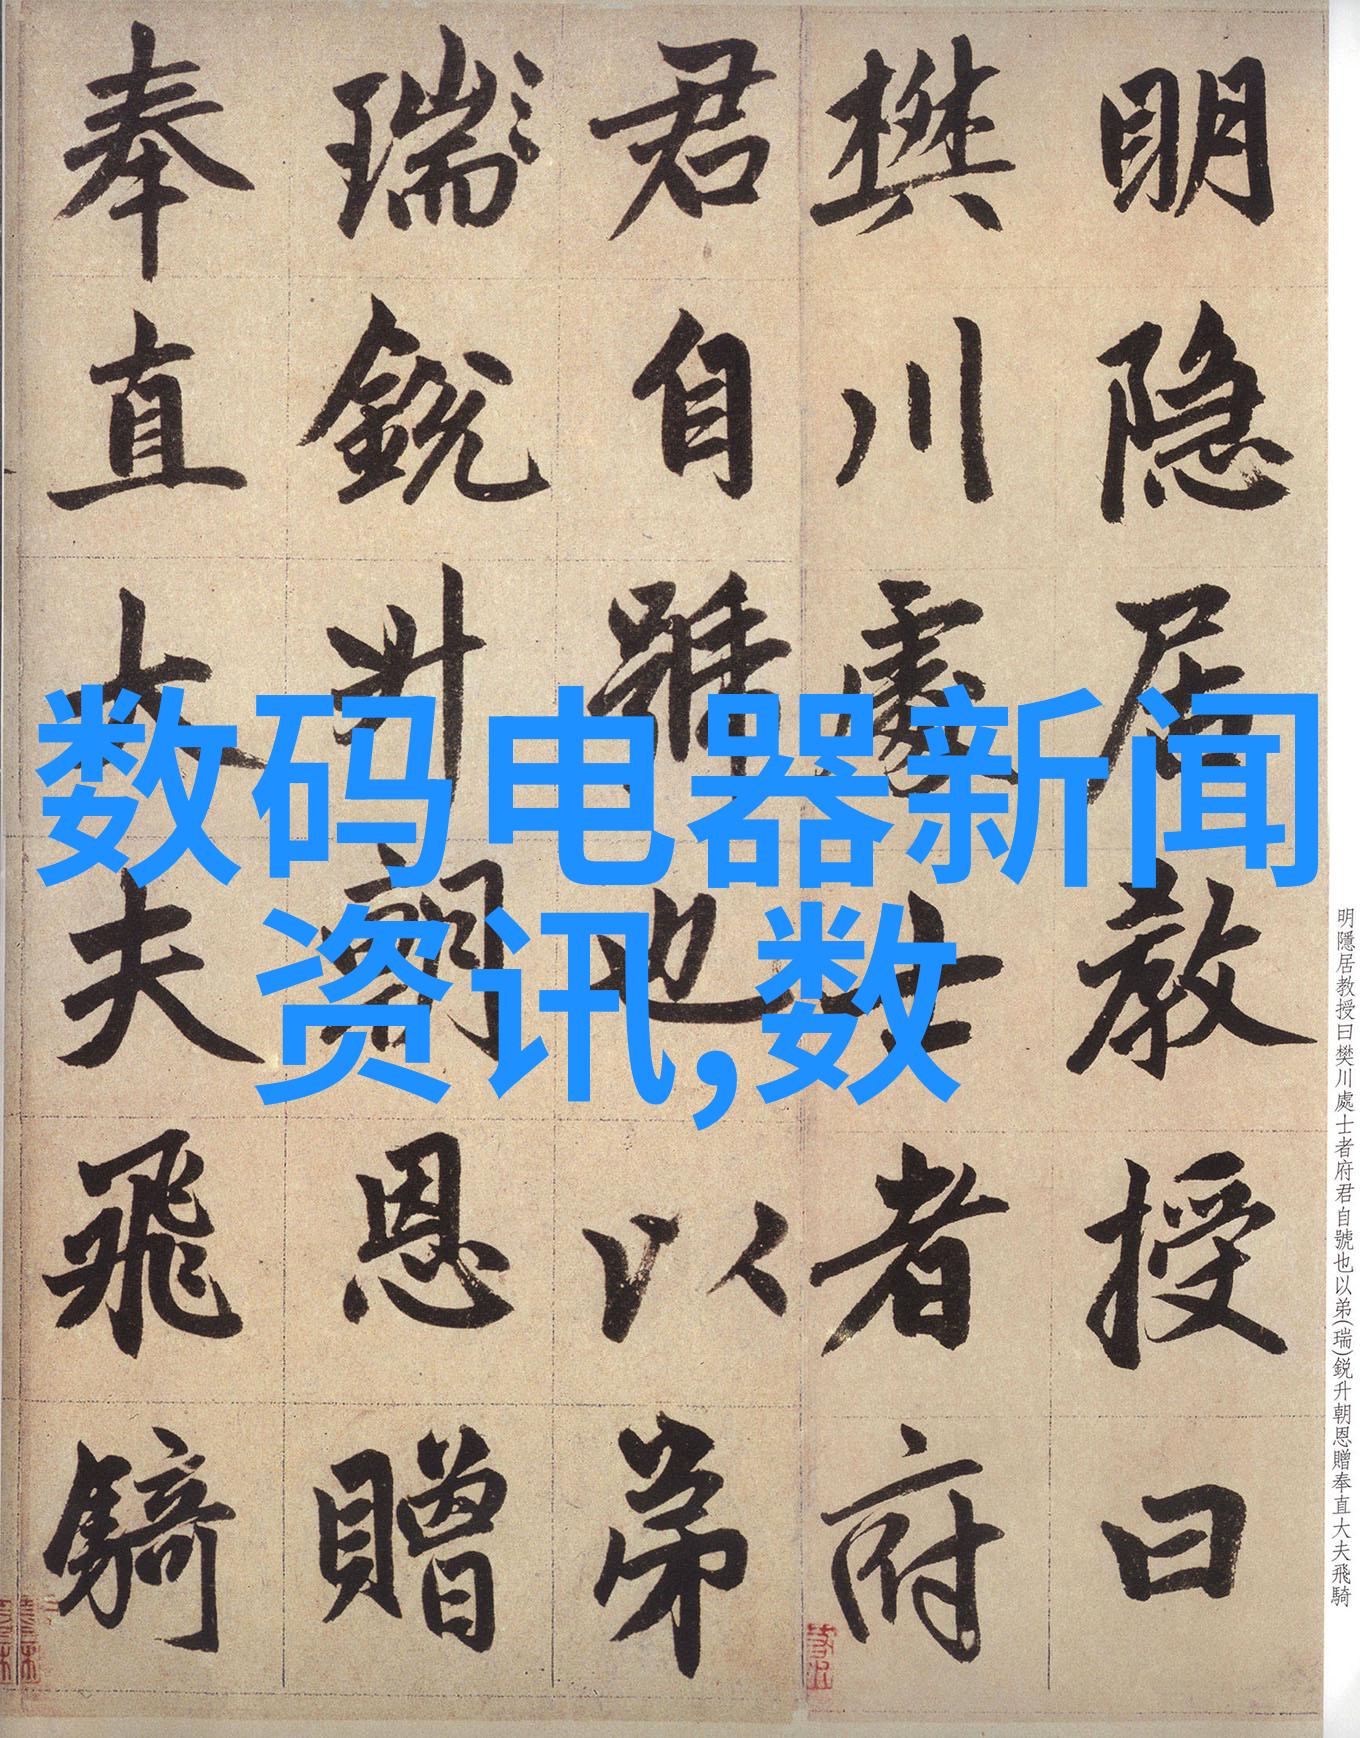 明隐居教授曰
樊川處士者府
君自號也以弟
瑞銳升朝恩贈
奉直大夫飛騎
数码电器新闻
资讯,数
明隱居教授曰樊川處士者府君自號也以弟(瑞)鋭升朝恩贈奉直大夫飛騎